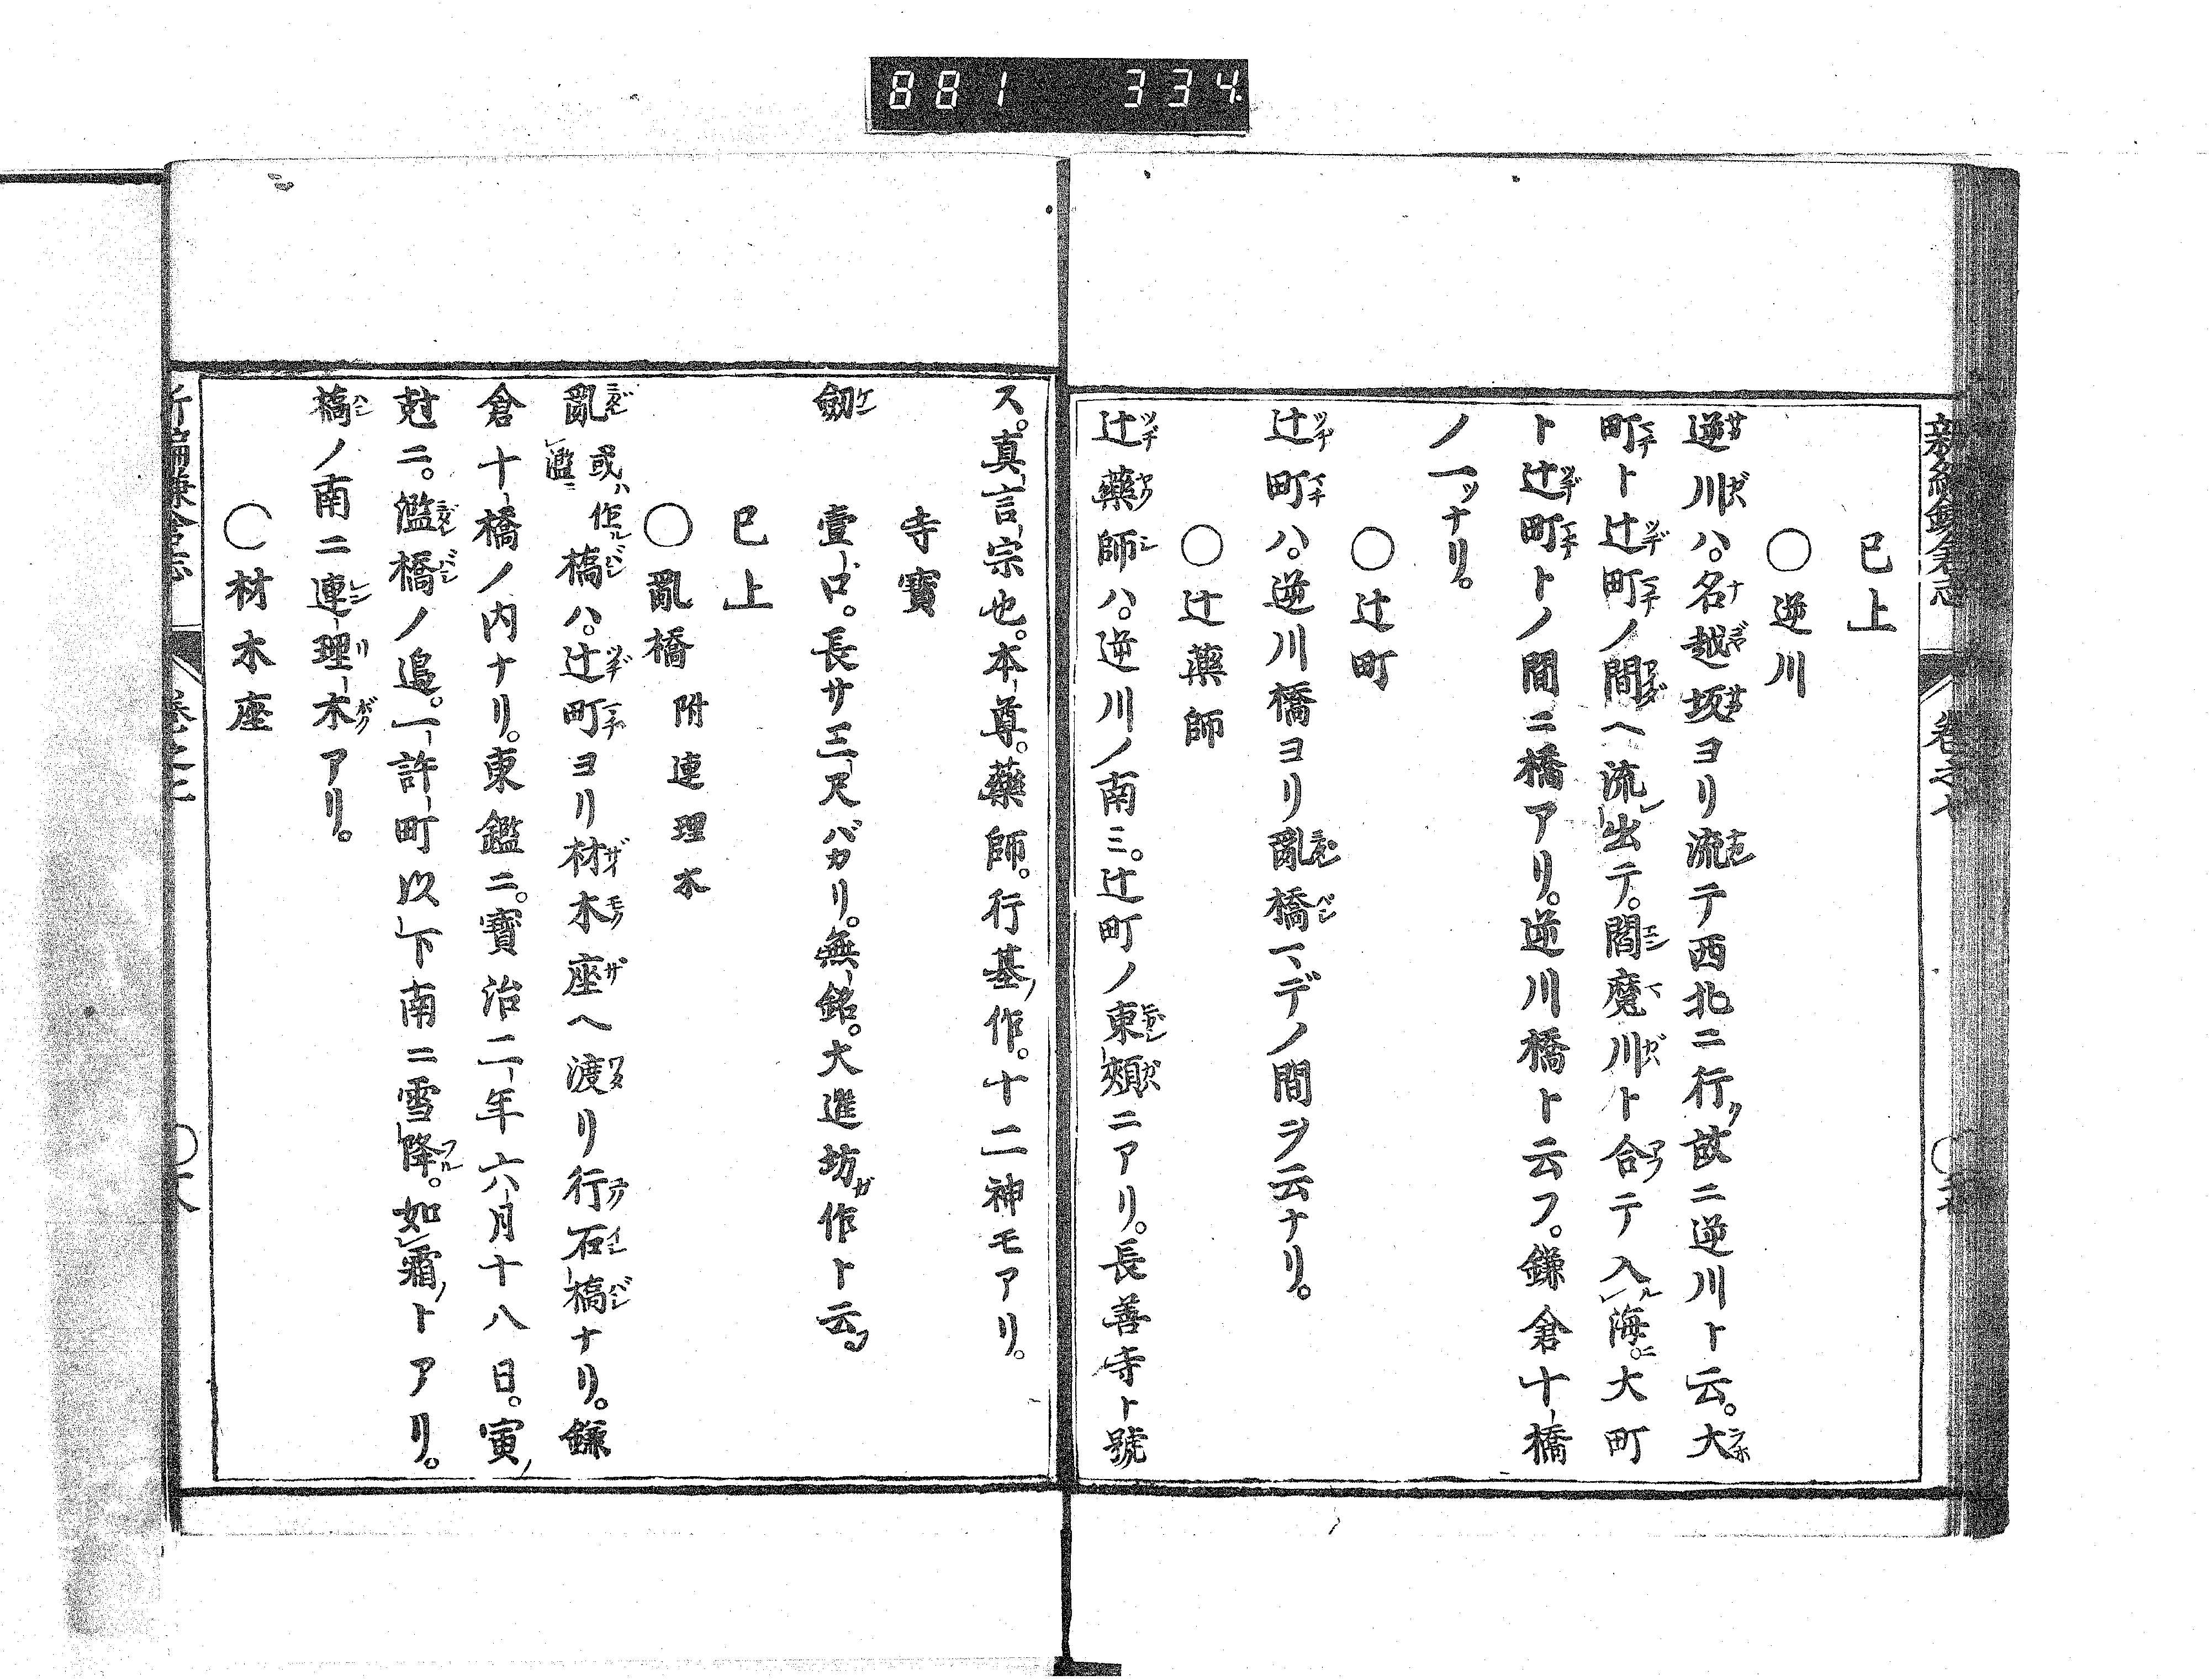 881 334
新編鎌倉志 卷之七
已上
○逆川
逆川ハ。名越坂ヨリ流テ西北ニ行ク故ニ逆川ト云。大
町ト辻町ノ間ヘ流レ出テ。閻魔川ト合テ入ル海ニ。大町
ト辻町トノ間ニ橋アリ。逆川橋ト云フ。鎌倉十橋
ノ一ツナリ。
○辻町
辻町ハ。逆川橋ヨリ亂橋マデノ間ヲ云ナリ。
○辻藥師
辻藥師ハ。逆川ノ南ミ。辻町ノ東頰ニアリ。長善寺ト號
ス。真言宗也。本尊。藥師。行基ノ作。十二神モアリ。
寺寶
劔 壹口。長サ三尺バカリ。無銘。大進坊ガ作ト云フ
已上
○亂橋 附連理木
亂 或ハ作ル濫ニ 橋ハ。辻町ヨリ材木座ヘ渡リ行石橋ナリ。鎌
倉十橋ノ内ナリ。東鑑ニ。寶治二年六月十八日。寅ノ
尅ニ。濫橋ノ邊。一許町以下南ニ雪降フル。如霜ノトアリ。
橋ノ南ニ連理木アリ。
○材木座